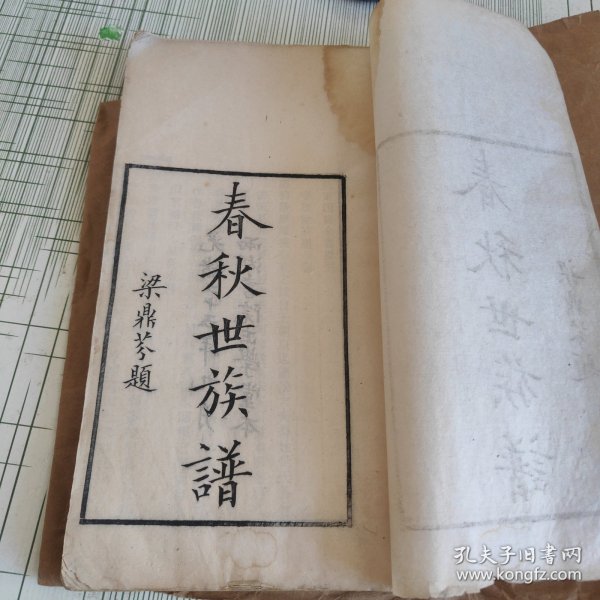 春秋世族譜
梁鼎芬題
孔夫子旧书网
www.kongfz.com